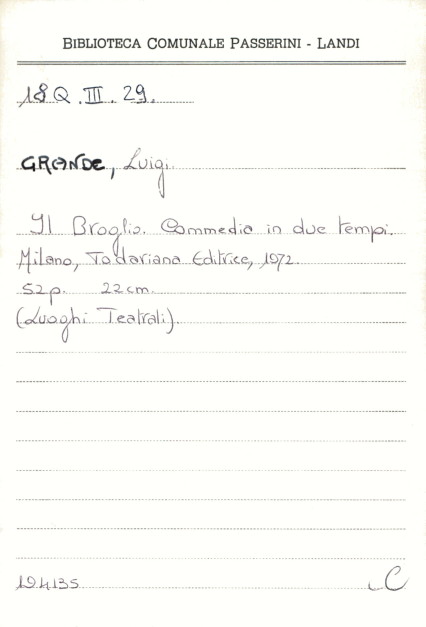 BIBLIOTECA COMUNALE PASSERINI - LANDI
18Q.III.29.
GRANDE, Luigi.
Il Broglio. Commedia in due tempi.
Milano, Todariana Editrice, 1972.
52p. 22cm.
(Luoghi Teatrali).
194135 C